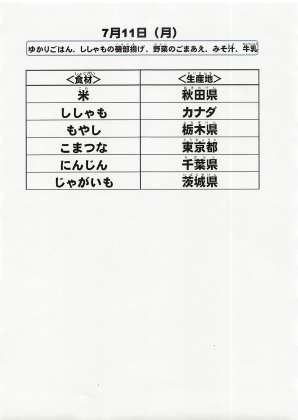 7月11日（月）
ゆかりごはん、ししゃもの磯部揚げ、野菜のごまあえ、みそ汁、牛乳
＜食材＞ ＜生産地＞
米 秋田県
ししゃも カナダ
もやし 栃木県
こまつな 東京都
にんじん 千葉県
じゃがいも 茨城県